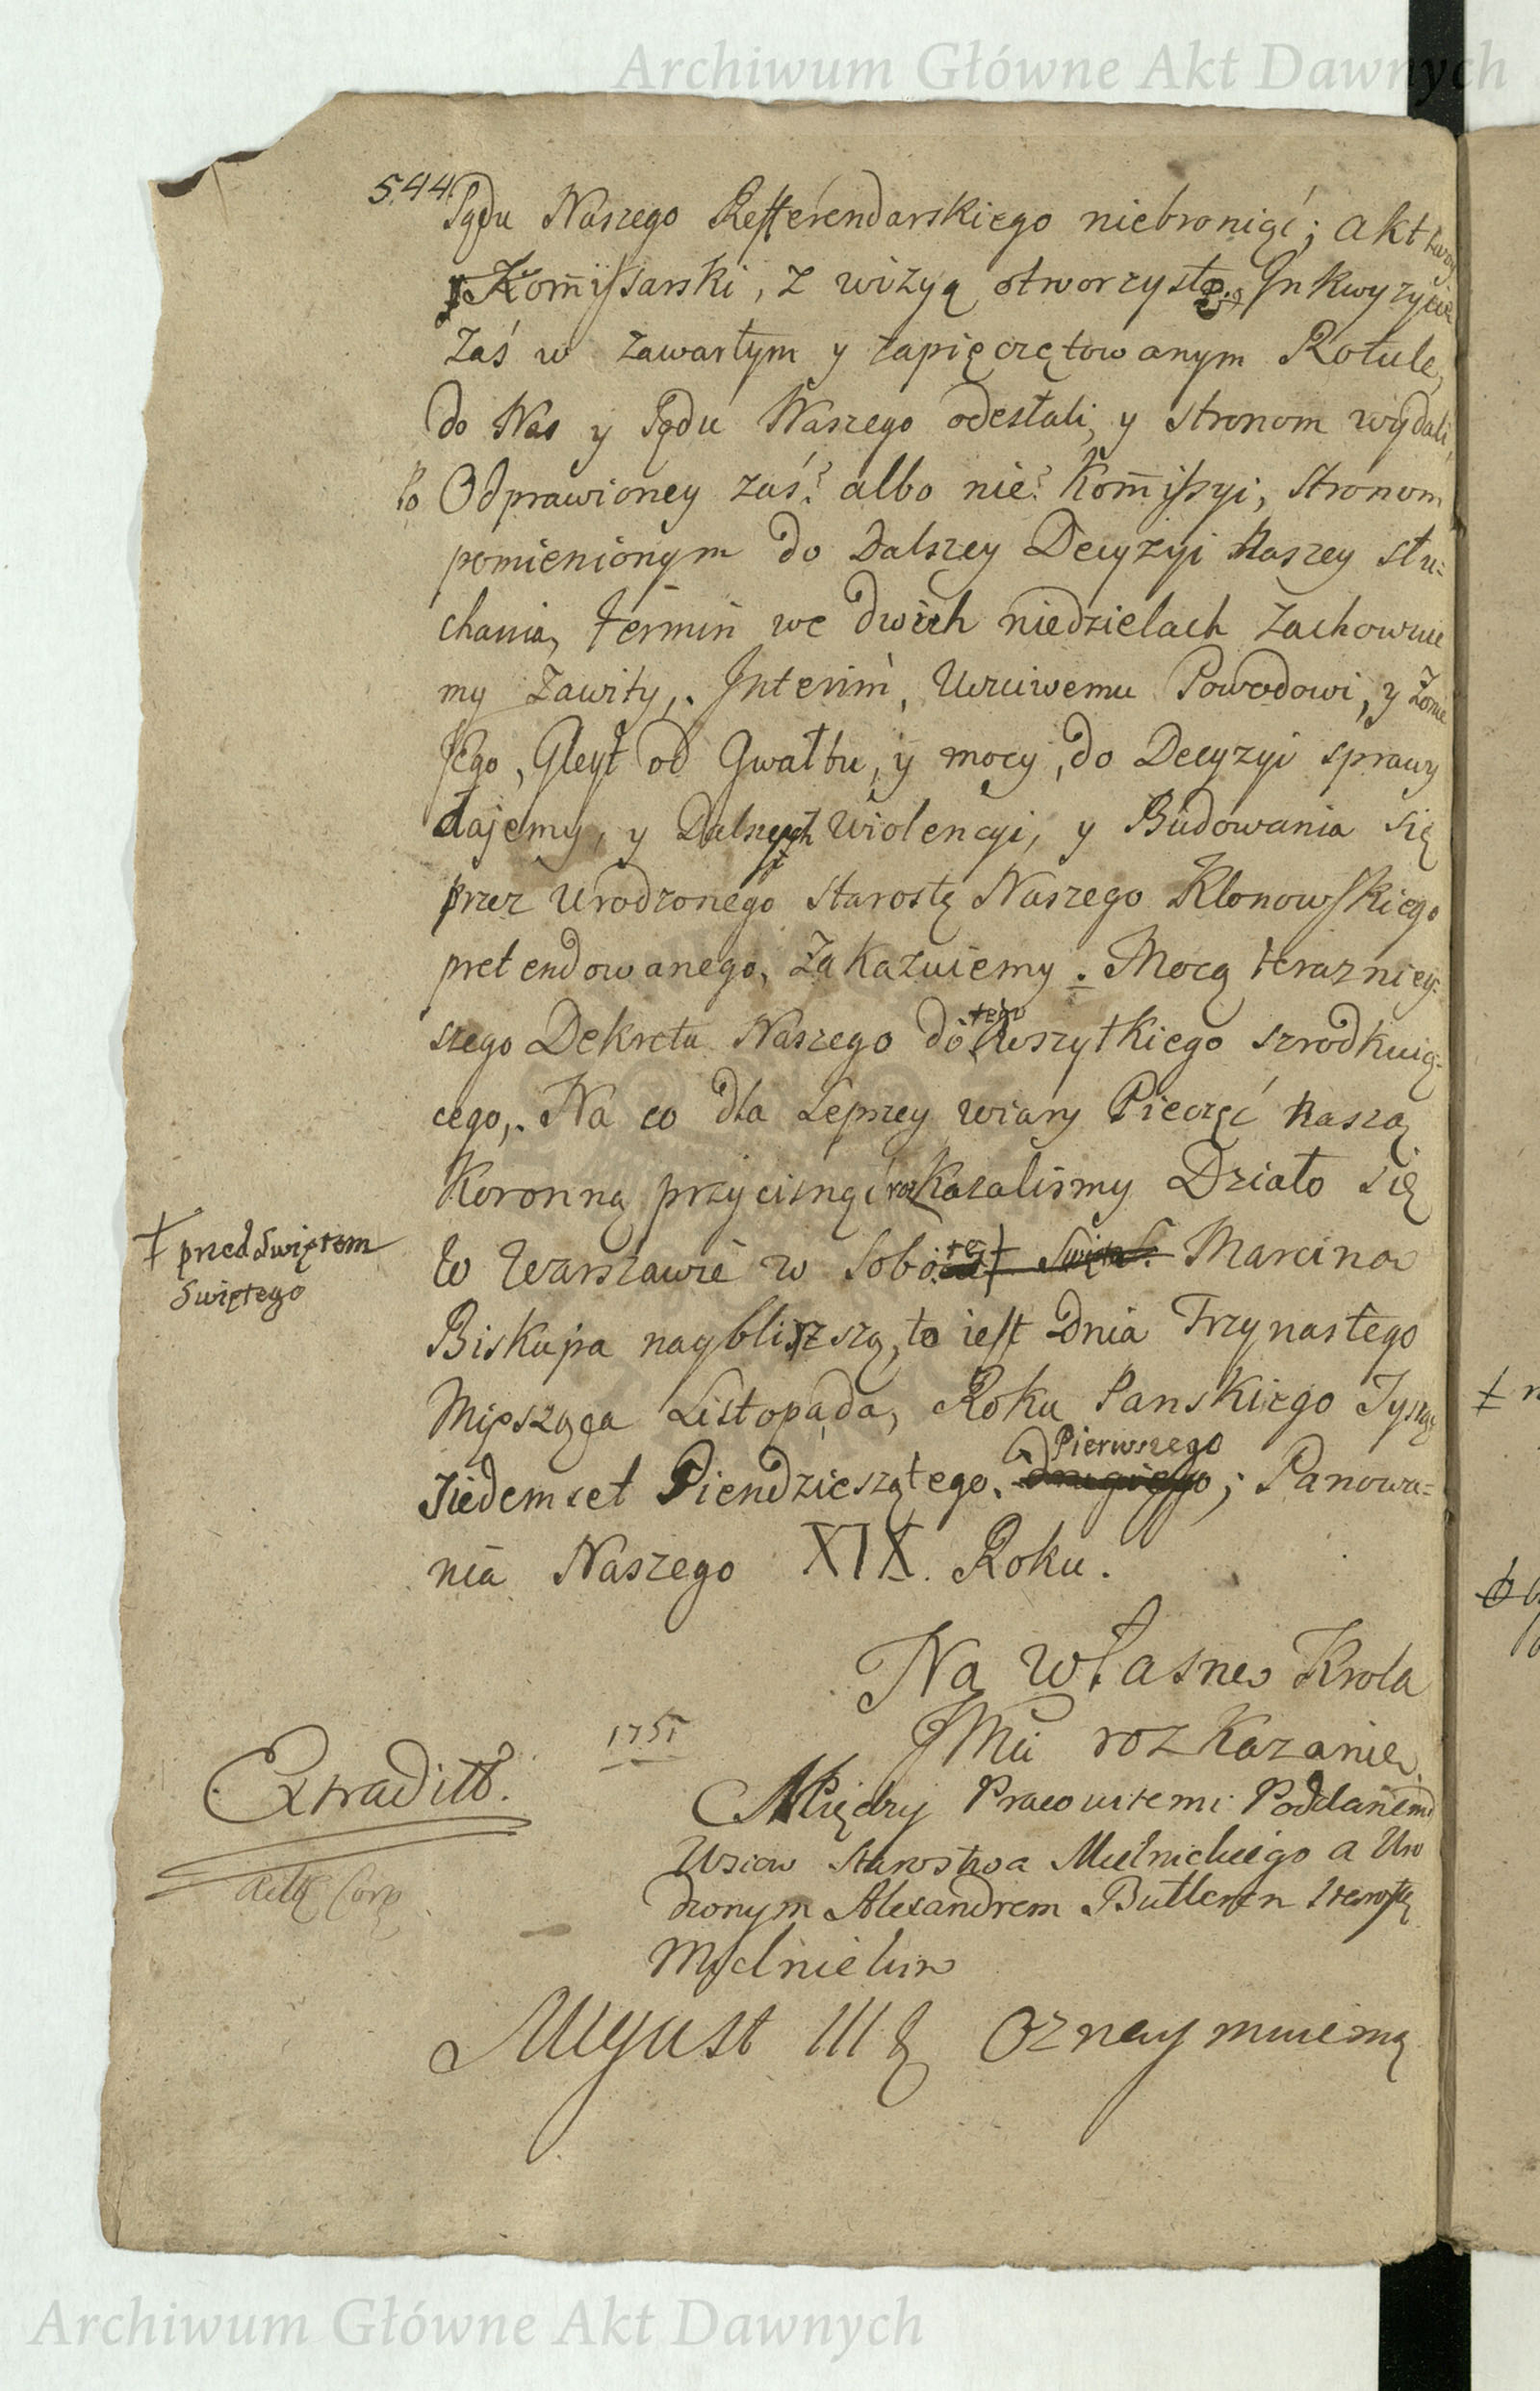 Archiwum Główne Akt Dawnych
544.
Sądu Naszego Refferendarskiego niebroniąć; akt
Kom̃issarski, z wizyą otworzysto. Inkwyzycie
Zaś w zawartym y zapięczętowanym Rotule,
do Nas y Sądu Naszego odesłali, y stronom wydali,
Po Odprawioney zaś? albo nie? Kom̃issyi, stronom
pomienionym do Dalszey Decyzyi Naszey słu-
chania, termin we dwuch niedzielach Zachowuie
my Zawity,. Interim, Uczciwemu Powodowi, y Zonie
Jego, Gleyt od Gwałtu, y mocy, do Decyzyi sprawy
dajemy, y Dalszych Wiolencyi, y Budowania się
przez Urodzonego Starostę Naszego Klonowskiego
pretendowanego, Zakazuiemy. Mocą terazniey-
szego Dekretu Naszego do tego wszytkiego szrodkuią-
cego,. Na co dla Lepszey wiary Pieczęć Naszą
Koronną przycisnąć rozkazalismy Działo się
† przed Swiętem
Swiętego
W Warszawie w Sobotę † Marcina
Biskupa naybliższą, to iest Dnia Trzynastego
Mięsząca Listopada, Roku Panskiego Tysząc
Siedemset Piendzieszątego. Pierwszego; Panowa-
nia Naszego XIX. Roku.
Na własne Krola
JMci rozkazanie.
1751
Extraditt.
Między Pracowitemi Poddanemi
Wsiow Starostwa Mielnickiego a Uro
dzonym Alexandrem Butlerem Starostą
Mielnickim
August III Oznaymuiemy
Archiwum Główne Akt Dawnych